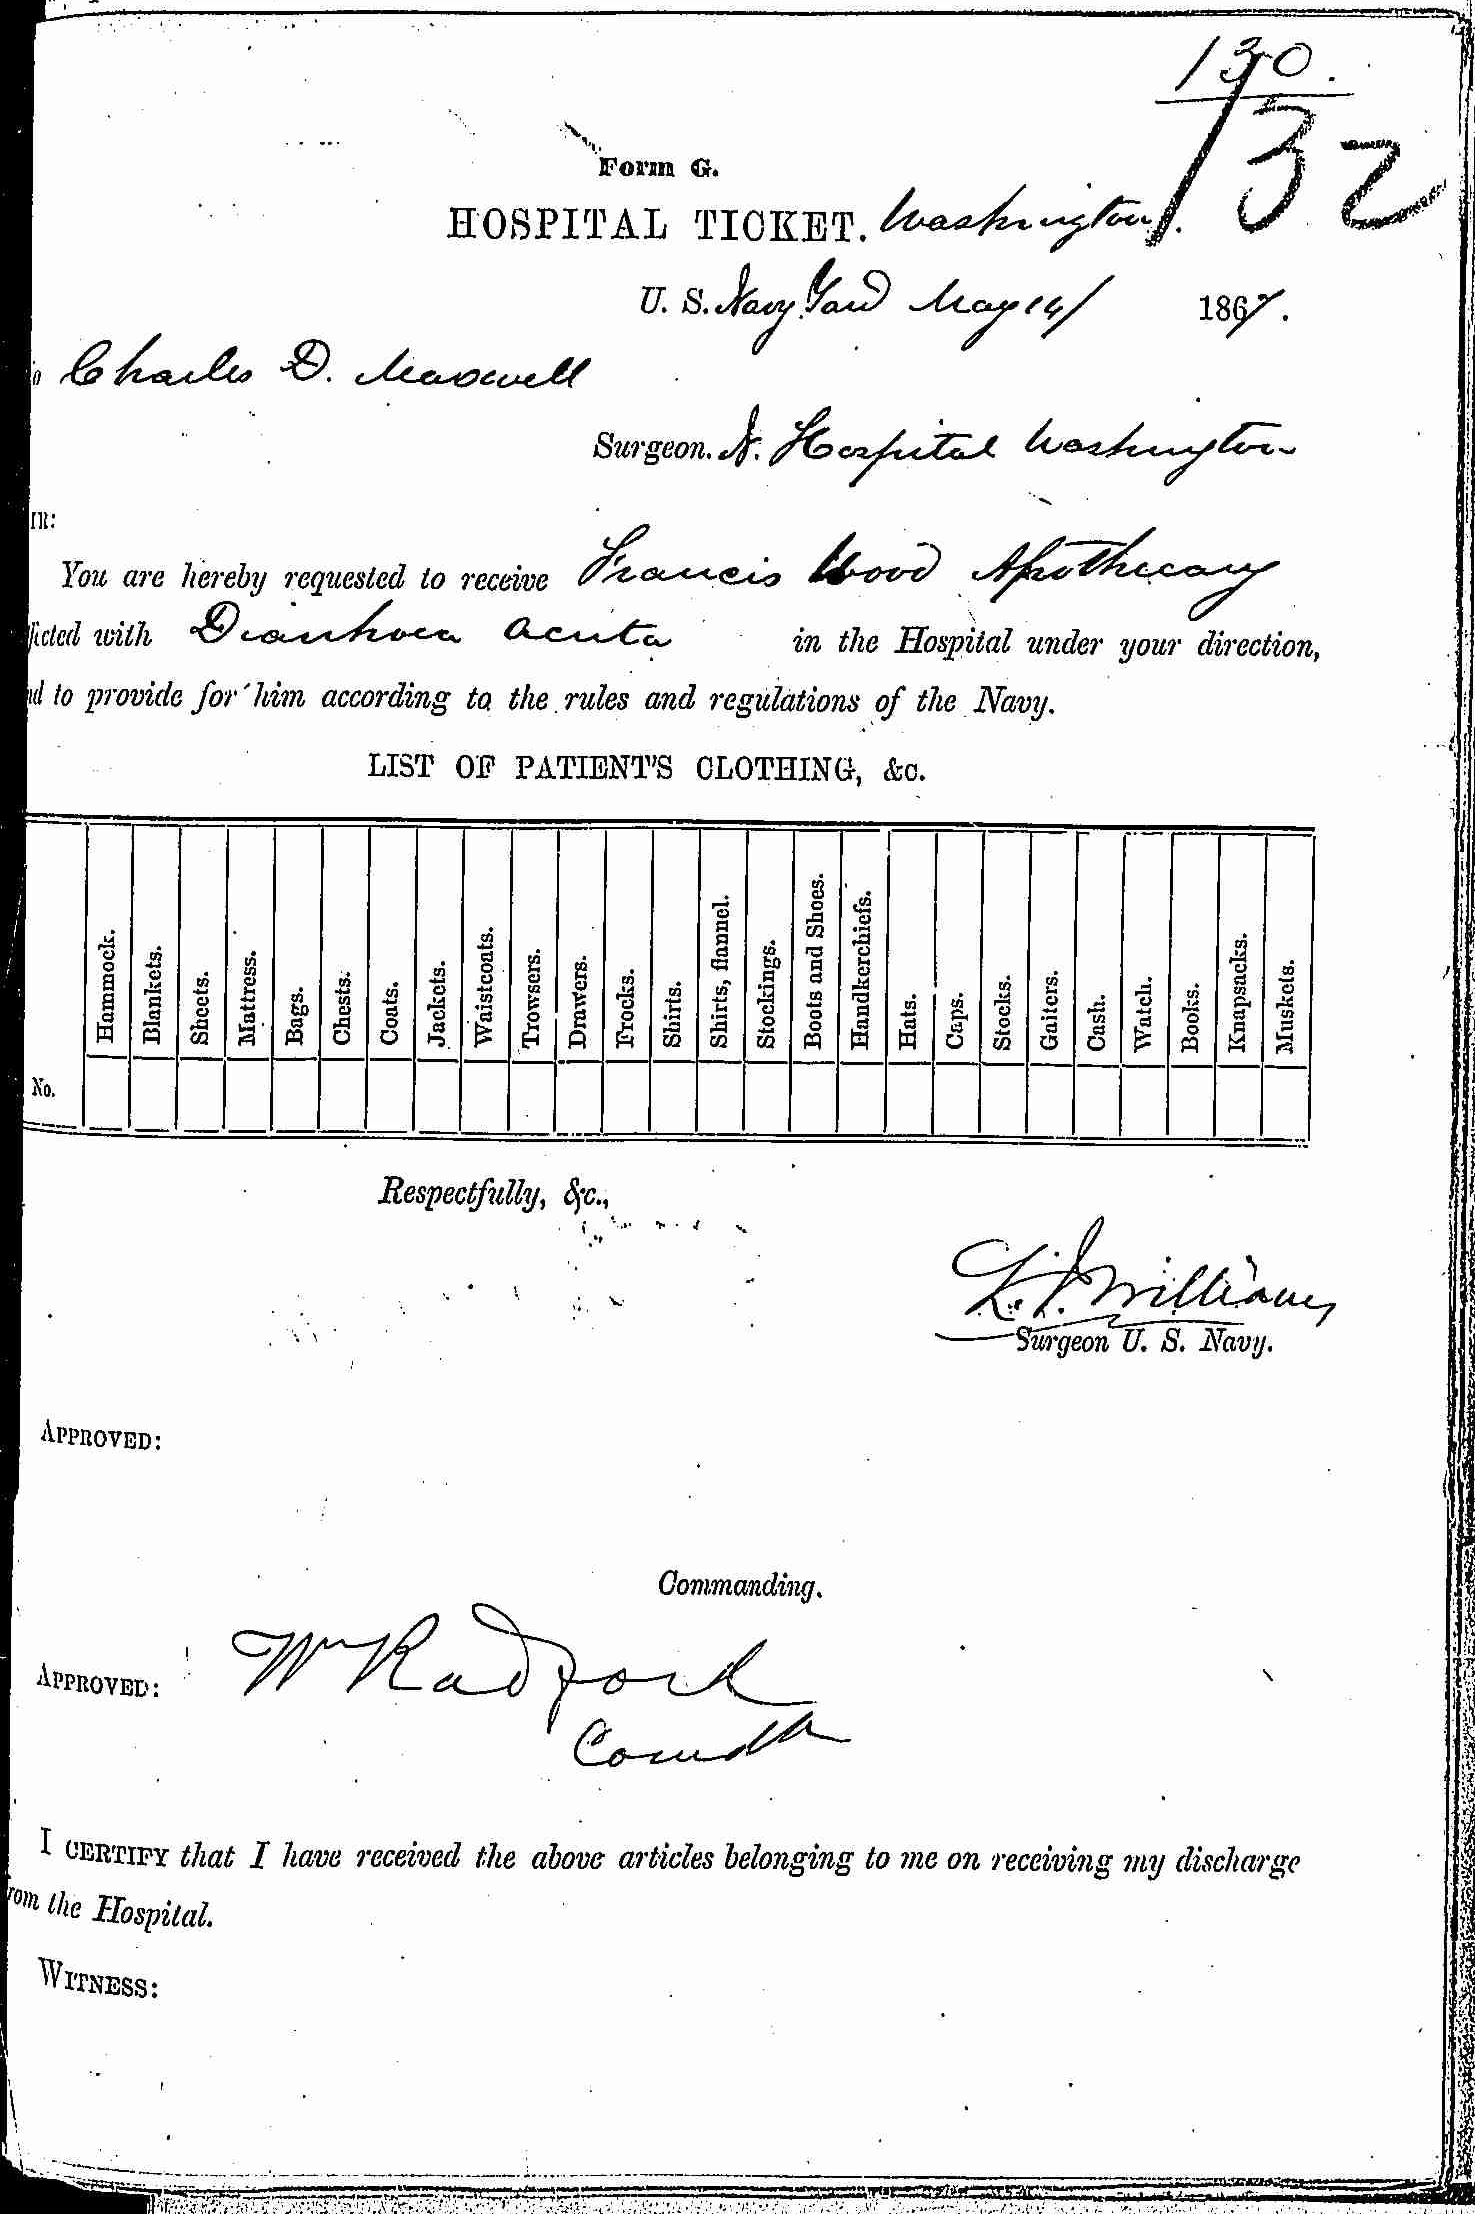 130.
132
Form G.
HOSPITAL TICKET. Washington.
U. S. Navy Yard May 14/ 1867.
o Charles D. Maxwell
Surgeon. N. Hospital Washington
IR:
You are hereby requested to receive Francis Wood Apothecary
flicted with Diarrhoea Acuta in the Hospital under your direction,
nd to provide for him according to the rules and regulations of the Navy.
LIST OF PATIENT'S CLOTHING, &c.
Hammock. Blankets. Sheets. Mattress. Bags. Chests. Coats. Jackets. Waistcoats. Trowsers. Drawers. Frocks. Shirts. Shirts, flannel. Stockings. Boots and Shoes. Handkerchiefs. Hats. Caps. Stocks. Gaiters. Cash. Watch. Books. Knapsacks. Muskets.
No.
Respectfully, &c.,
L. J. Williams
Surgeon U. S. Navy.
APPROVED:
Commanding.
APPROVED: Wm Radford
Comdt
I CERTIFY that I have received the above articles belonging to me on receiving my discharge
rom the Hospital.
WITNESS: